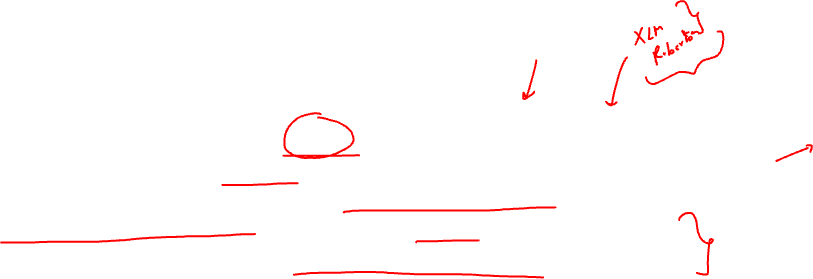 XLM
Roberta